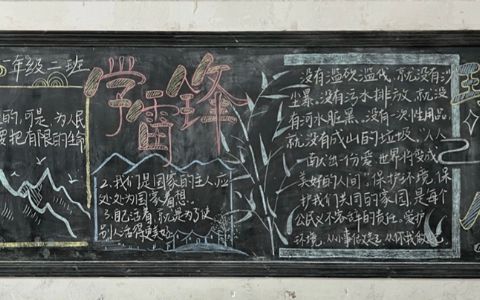 年级二班
的,可是,为人民
要把有限的生命
学雷锋
2.我们是国家的主人,应
处处为国家着想。
3.自己活着,就是为了使
别人活得更美好
没有滥砍滥伐,就没有沙
尘暴。没有污水排放,就没
有污水脏臭。没有一次性用品,
就没有成山的垃圾。"人人
献出一份爱,世界将变成
美好的人间"保护环境,保
护我们共同的家园,是每个
公民义不容辞的责任。爱护
环境,从小事做起,从你我做起